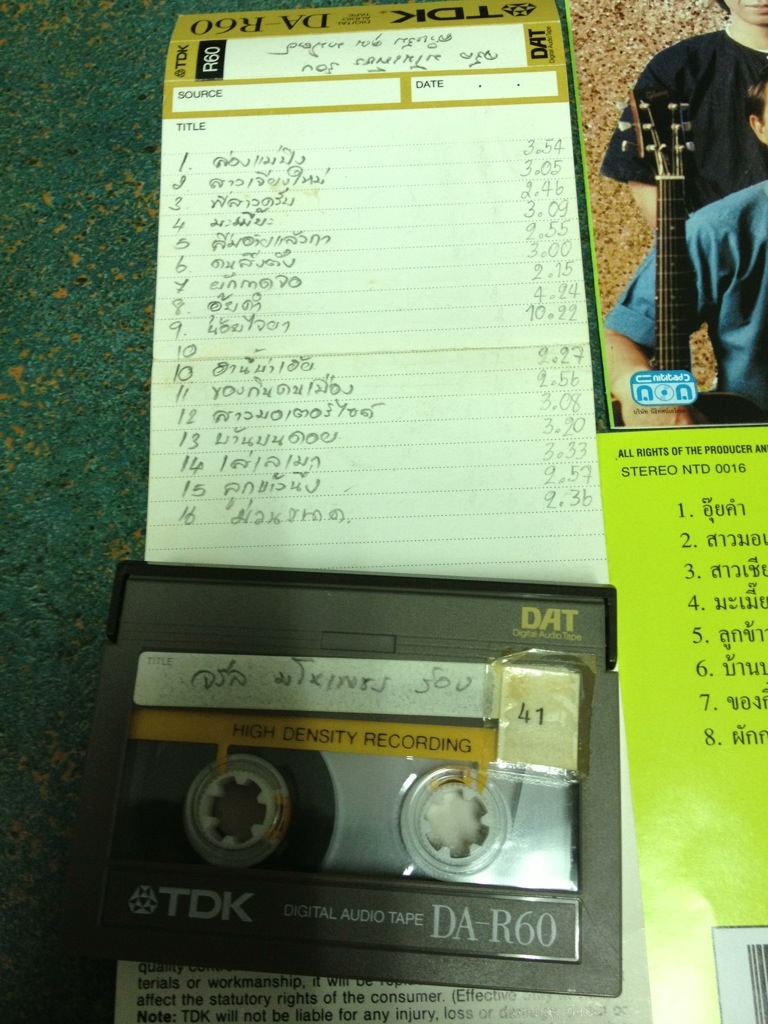 TDK DIGITAL AUDIO TAPE DA-R60
TDK R60
จรัล มโนเพ็ชร ร้อง
DAT Digital Audio Tape
SOURCE
DATE . .
TITLE
1. ล่องแม่ปิง 3.54
2 สาวเชียงใหม่ 3.05
3 พี่สาวครับ 2.46
4 มะเมี๊ยะ 3.09
5 ลืมอ้ายแล้วกา 2.55
6 คนสึ่งตึง 3.00
7 ผักกาดจอ 2.15
8. อุ๊ยคำ 4.24
9. น้อยไจยา 10.22
10
10 ฮานี้บ่าเฮ้ย 2.27
11 ของกิ๋นคนเมือง 2.56
12 สาวมอเตอร์ไซค์ 3.08
13 บ้านบนดอย 3.20
14 เสเลเมา 3.33
15 ลูกข้าวนึ่ง 2.57
16 2.36
DAT
Digital Audio Tape
TITLE
จรัล มโนเพชร ร้อง
41
HIGH DENSITY RECORDING
TDK DIGITAL AUDIO TAPE DA-R60
terials or workmanship, it will be
affect the statutory rights of the consumer. (Effective
Note: TDK will not be liable for any injury, loss or
Nititad
ALL RIGHTS OF THE PRODUCER AN
STEREO NTD 0016
1. อุ๊ยคำ
2. สาวมอเ
3. สาวเชีย
4. มะเมี๊ย
5. ลูกข้า
6. บ้านบ
7. ของกิ
8. ผักก